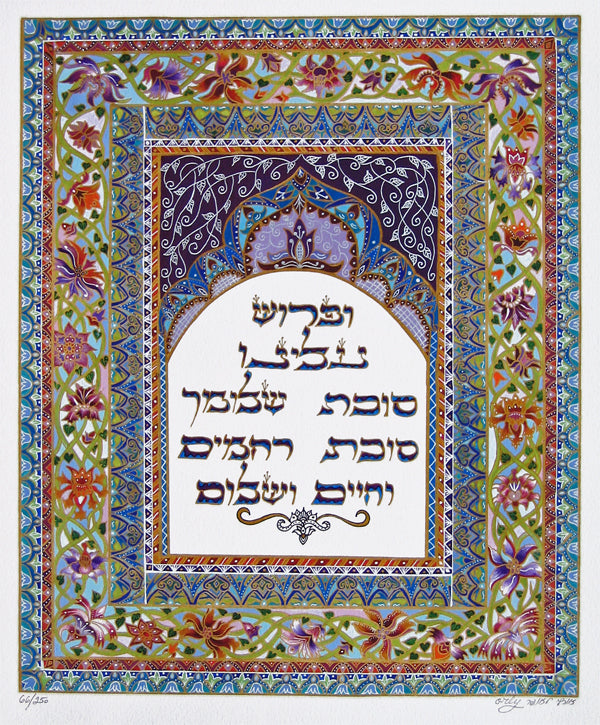 ופרוש
עלינו
סוכת שלומך
סוכת רחמים
וחיים ושלום
66/250 Orly